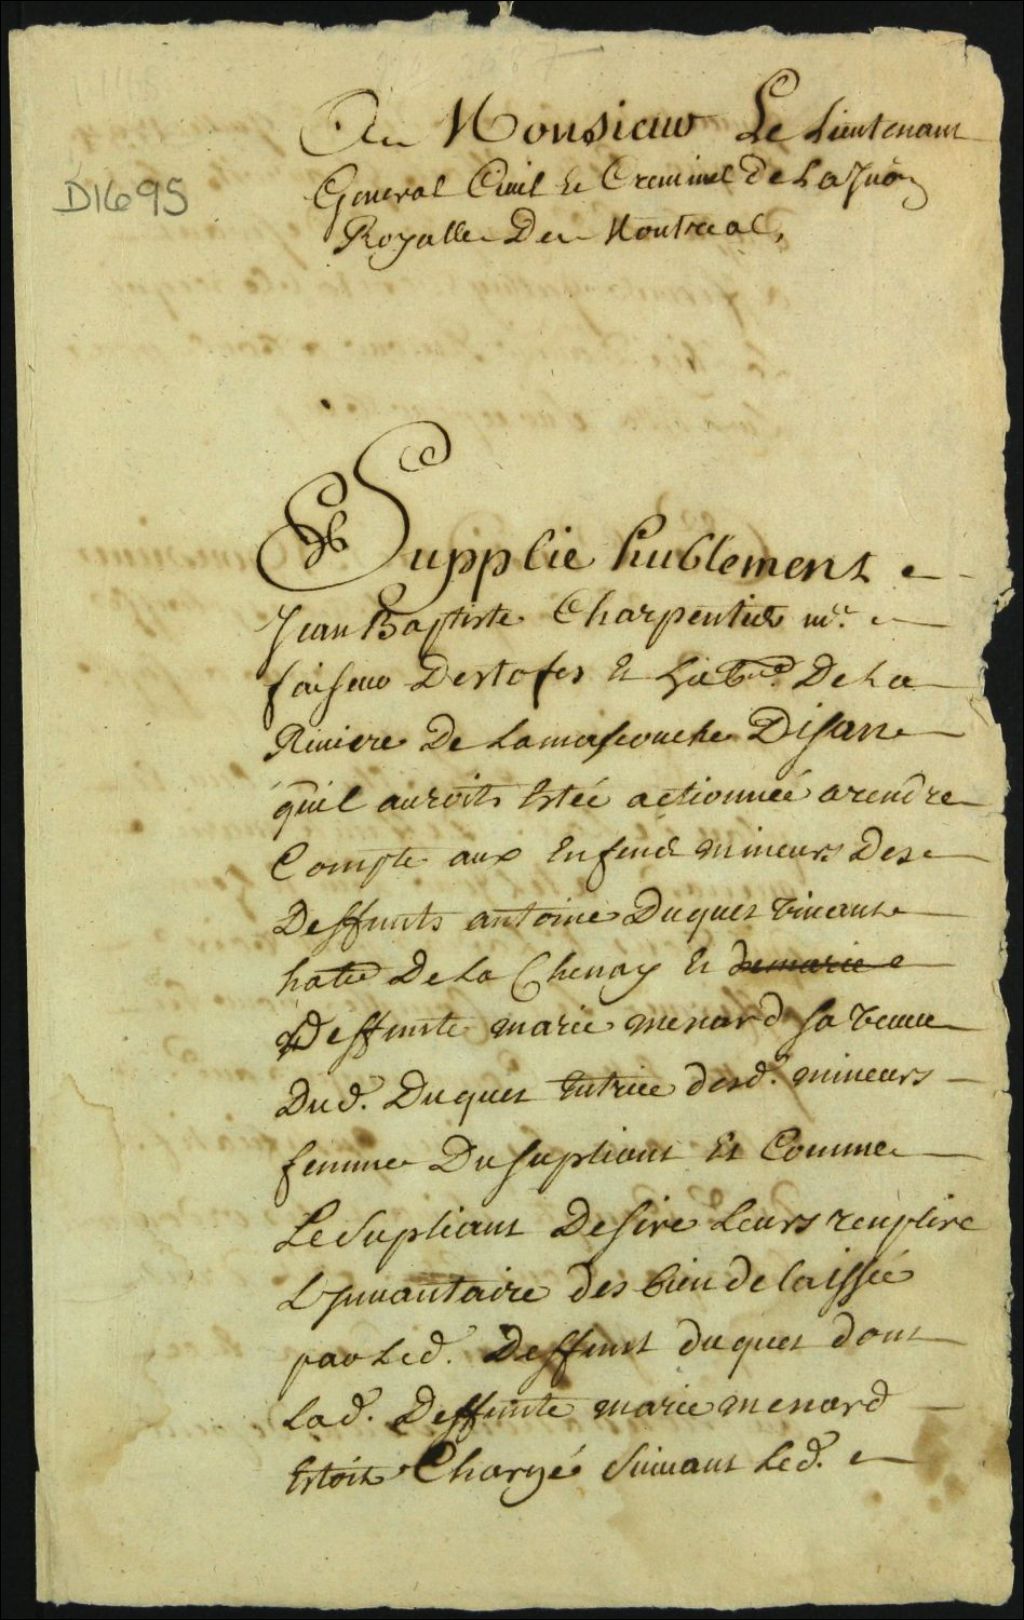 Au Monsieur Le Lieutenant
General Ciuil Et Creminel De La Juõn
Royalle De Montreal,
D1695
Supplie hublement
Jean Baptiste Charpentier m.e
faiseur Destofes Et habt. De La
Riuiere De Lamascouche Disant
quil auroits Estée actionnée a rendre
Compte aux Enfend mineurs Des
Deffunts antoine Duquet viuant
hatt De La Chenay Et demarie
Deffunte marie menard sa veuue
Dud. Duquet tutrice desd. mineurs
femme Du supliant Et Comme
Le supliant Desire Leurs remplire
Lynuantaire des bien delaissée
par Led. Deffunt duquet dont
Lad. Deffunte marie menard
Estoit Chargé suiuant Led.